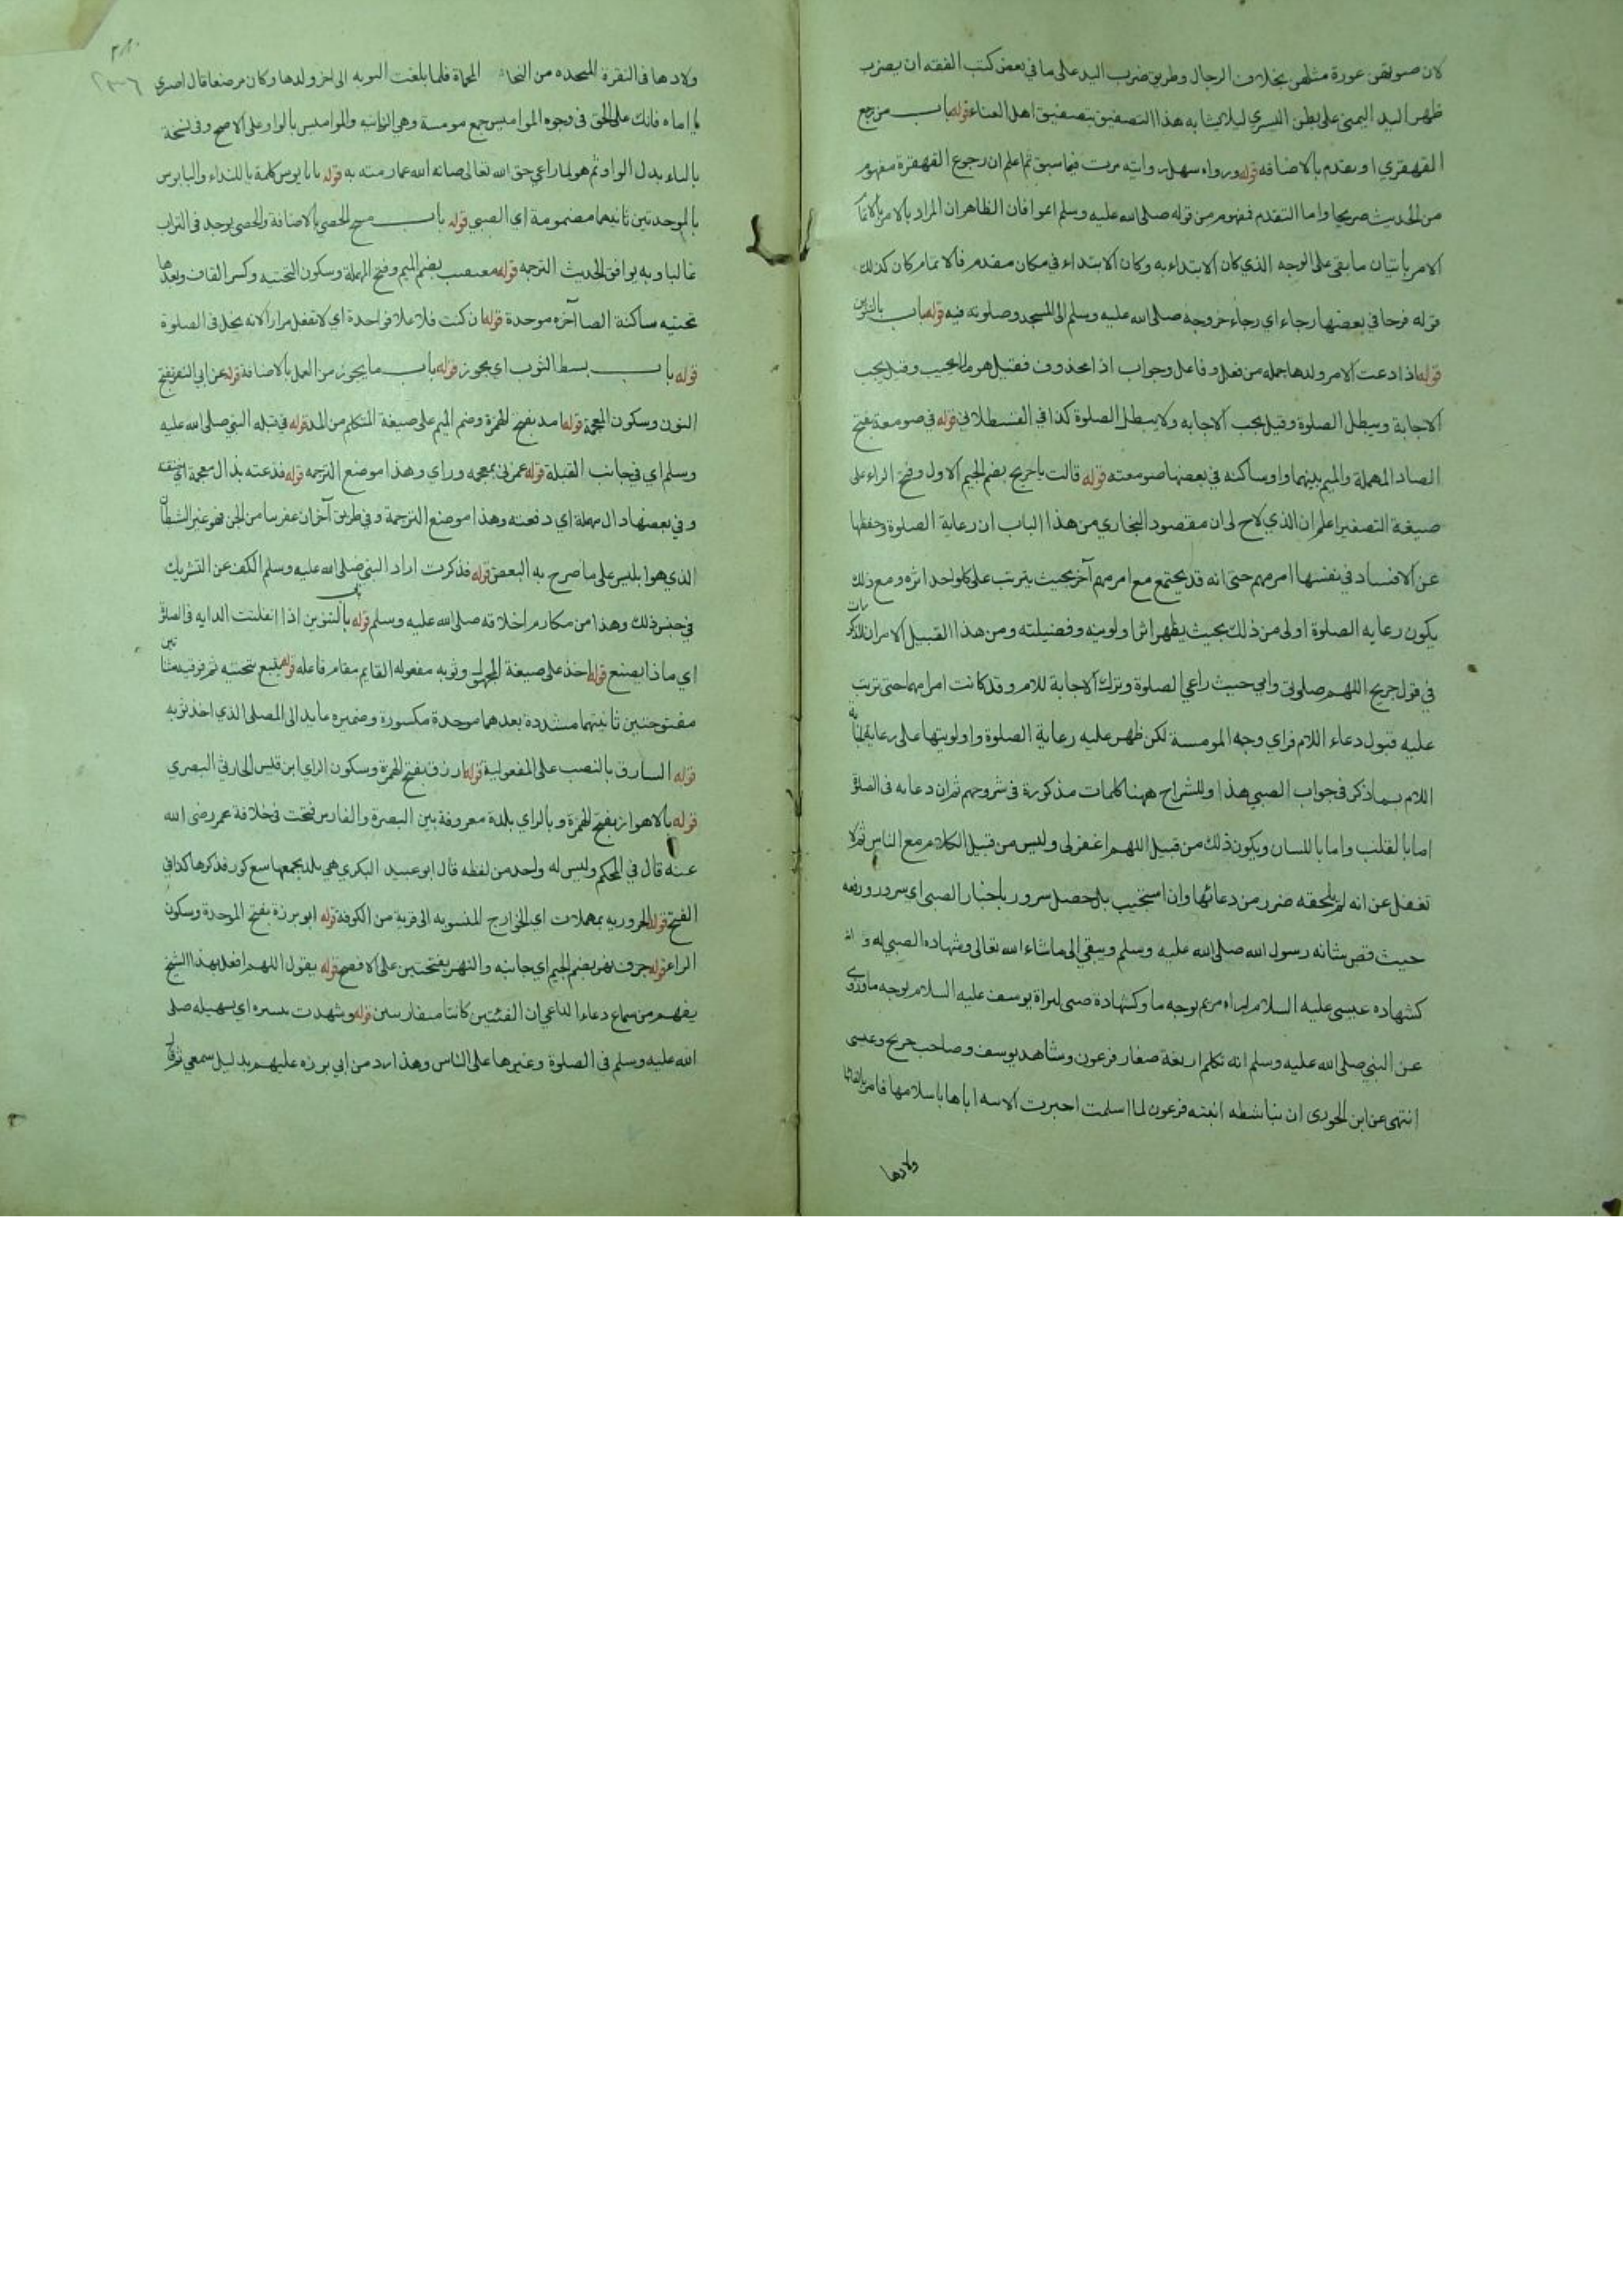 لان صوتهن عورة مثلهن بخلاف الرجال وطريق ضرب اليد على ما في بعض كتب الفقه ان يضرب
ظهر اليد اليمنى على بطن اليسري ليلا يتشابه هذا التصفيق بتصفيق اهل الغناء قوله باب من رجع
القهقري او تقدم بالاضافه قوله ورواه سهل روايته مرت فيما سبق ثم اعلم ان رجوع القهقرة مفهوم
من الحديث صريحا واما التقدم فمفهوم من قوله صلى الله عليه وسلم اتموا فان الظاهر ان المراد بالامر بالاتمام
الامر باتيان ما بقى على الوجه الذي كان الابتداء به وكان الابتداء في مكان مقدم فالاتمام كان كذلك
قوله فرحا في بعضها رجاء اي رجاء خروجه صلى الله عليه وسلم الى المسجد وصلوته فيه قوله باب بالتنوين
قوله اذا دعت الام ولدها جمله من فعل وفاعل وجواب اذا محذوف فقيل هو ما يجيب وقيل يجب
الاجابة ويبطل الصلوة وقيل يجب الاجابه ولا يبطل الصلوة كذا في القسطلاني قوله في صومعة بفتح
الصاد المهملة والميم بينهما واو ساكنه في بعضها صومعته قوله قالت يا جريج بضم الجيم الاول وفتح الراء على
صيغة التصغير اعلم ان الذي لاح لى ان مقصود البخاري من هذا الباب ان رعاية الصلوة وحفظها
عن الافساد في نفسها امر مهم حتى انه قد يجتمع مع امر مهم آخر بحيث يترتب على كل واحد اثره ومع ذلك
يكون رعايه الصلوة اولى من ذلك بحيث يظهر اثر اولويته وفضيلته ومن هذا القبيل الامران المذكوران
في قول جريج اللهم صلوتى وامي حيث راعي الصلوة وترك الاجابة للام وقد كانت امرا مهما حتى ترتب
عليه قبول دعاء اللام فراي وجه المومسة لكن ظهر عليه رعاية الصلوة واولويتها على رعاية اجابة
اللام بما ذكر في جواب الصبي هذا وللشراح ههنا كلمات مذكورة في شروحهم ثم ان دعائه في الصلوة
اما بالقلب واما باللسان ويكون ذلك من قبيل اللهم اغفر لى وليس من قبيل الكلام مع الناس ثم لا
تغفل عن انه لم يلحقه ضرر من دعائها وان استجيب بل حصل سرور باخبار الصبى اي سرور ورفعه
حيث قص شانه رسول الله صلى الله عليه وسلم ويبقي الى ماشاء الله تعالى وشهاده الصبي له
كشهاده عيسى عليه السلام لبراه مريم بوجه ما وكشهادة صبى لبراة يوسف عليه السلام بوجه ما وروى
عن النبي صلى الله عليه وسلم انه تكلم اربعة صغار فرعون وشاهد يوسف وصاحب جريج وعيسى
انتهى عن ابن الجوزى ان ماشطه ابنته فرعون لما اسلمت اخبرت الابنه اباها باسلامها فامر بالقائها
ولادها
ولادها في النقرة المتخذه من النحاس المحماة فلما بلغت النوبه الى اخر ولدها وكان مرضعا قال اصبري
يا اماه فانك على الحق في وجوه المواميس جمع مومسة وهي الزانيه والمواميس بالواو على الاصح وفي نسخة
بالياء بدل الواو ثم هو لما راعي حق الله تعالى صانه الله عما رمته به قوله يا بابوس كلمة يا للنداء والبابوس
بالموحدتين ثانيهما مضمومة اي الصبي قوله باب مسح الحصي بالاضافة والحصى يوجد في التراب
غالبا وبه يوافق الحديث الترجمه قوله معيقيب بضم الميم وفتح المهملة وسكون التحتيه وكسر القاف وبعدها
تحتيه ساكنة الصا آخره موحدة قوله ان كنت فلا علا فواحدة اي لا تفعل مرارا لانه يخل في الصلوة
قوله باب بسط الثوب اي يجوز قوله باب ما يجوز من العمل بالاضافة قوله عن ابي النضر بفتح
النون وسكون المعجمة قوله امد بفتح الهمزة وضم الميم على صيغة المتكلم من المد قوله في قبله النبي صلى الله عليه
وسلم اي في جانب القبلة قوله غمزني بمعجمه وراي وهذا موضع الترجمه قوله فذعته بذال معجمة اي خنقته
وفي بعضها دال مهملة اي دفعته وهذا موضع الترجمة وفي طريق آخر ان عفريتا من الجن فهو غير الشيطان
الذي هو ابليس على ما صرح به البعض قوله فذكرت اراد النبي صلى الله عليه وسلم الكف عن التشريك
في جنس ذلك وهذا من مكارم اخلاقه صلى الله عليه وسلم قوله باب بالتنوين اذا انفلتت الدابه في الصلوة
اي ماذا يصنع قوله اخذ على صيغة المجهول وثوبه مفعوله القايم مقام فاعله قوله يتبع بتحتيه ثم فوقيتين
مفتوحتين ثانيتهما مشددة بعدهما موحدة مكسورة وضميره عايد الى المصلى الذي اخذ ثوبه
قوله السارق بالنصب على المفعولية قوله ازرق بفتح الهمزة وسكون الزاي ابن قيس الحارثي البصري
قوله بالاهواز بفتح الهمزة وبالزاي بلدة معروفة بين البصرة والفارس فتحت في خلافة عمر رضى الله
عنه قال في المحكم وليس له واحد من لفظه قال ابو عبيد البكري هي بلد يجمعها سبع كور فذكرها كذا في
الفتح قوله الحروريه بمهملات اي الخوارج المنسوبه الى قرية من الكوفة قوله ابو برزة بفتح الموحدة وسكون
الراء قوله جرف نهر بضم الجيم اي جانبه والنهر بفتحتين على الافصح قوله يقول اللهم افعل بهذا الشيخ
يفهم من سماع دعاء الداعي ان الفئتين كانتا متقاربتين قوله وشهدت تيسيره اي تسهيله صلى
الله عليه وسلم في الصلوة وغيرها على الناس وهذا رد من ابي برزه عليهم بدليل سمعي ثم قال